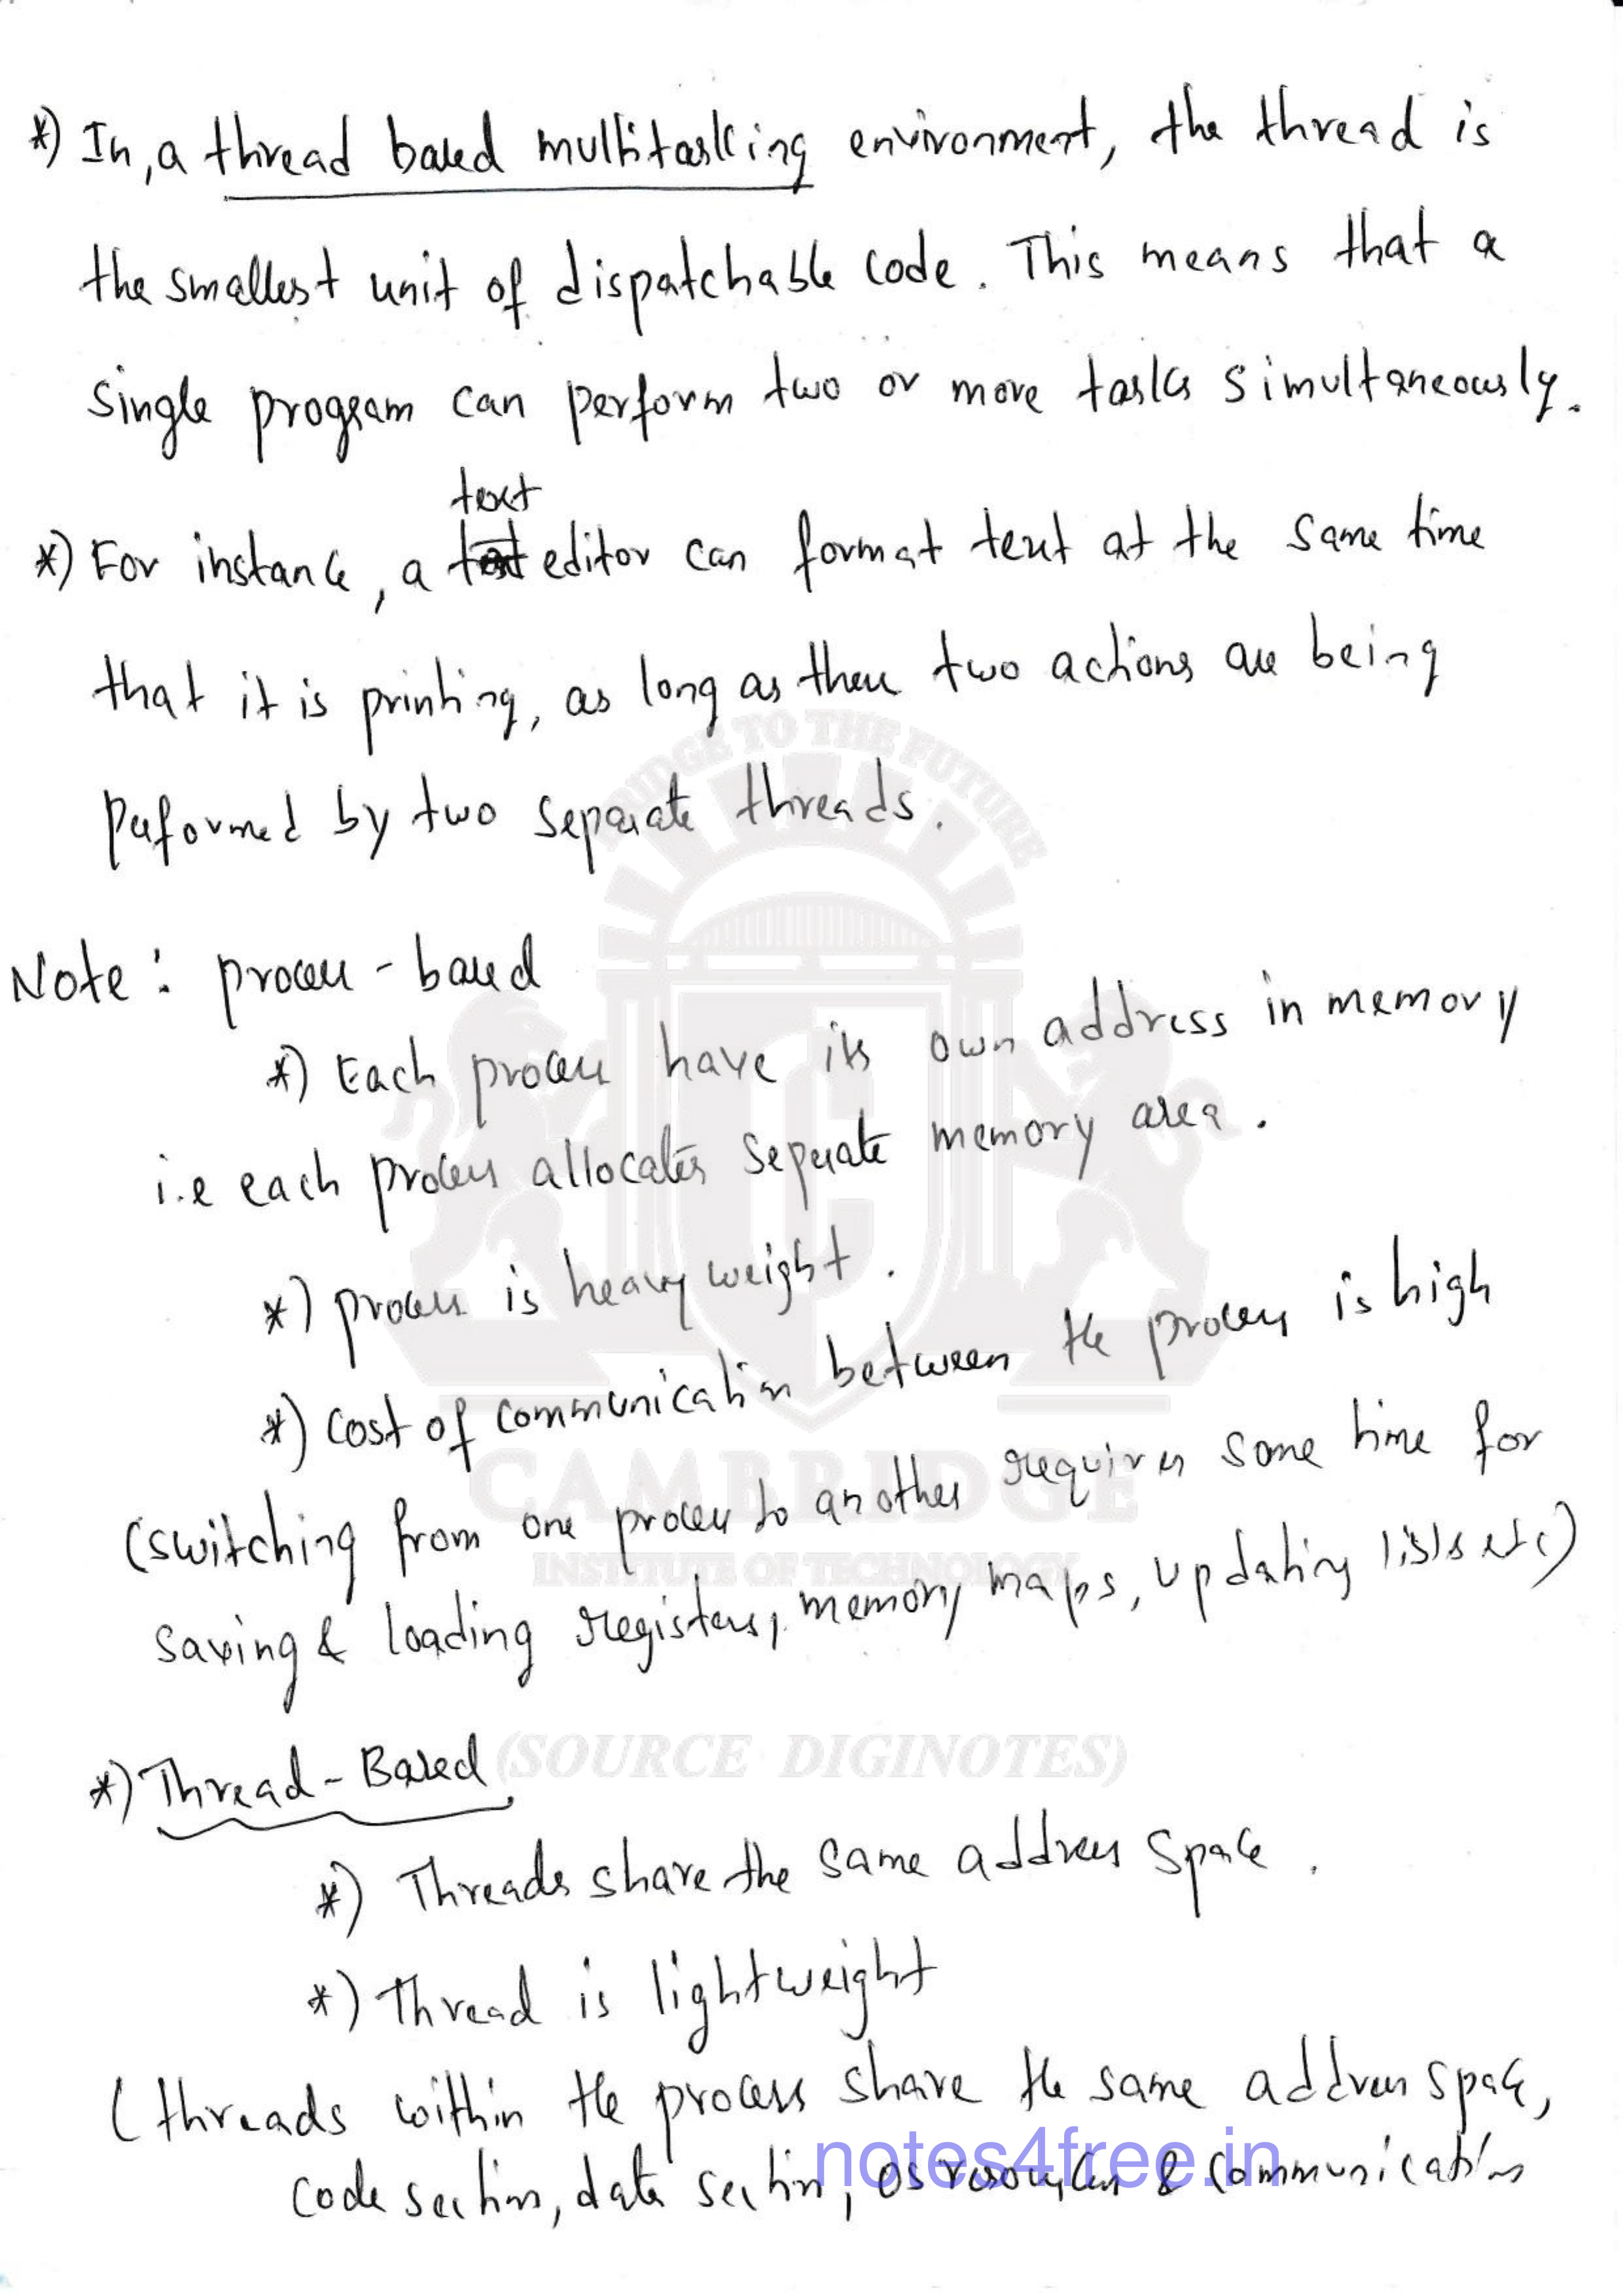 *) In, a thread based multitasking environment, the thread is
the smallest unit of dispatchable code. This means that a
single program can perform two or more tasks simultaneously.
text
*) For instance, a text editor can format text at the same time
that it is printing, as long as these two actions are being
performed by two separate threads.
BRIDGE TO THE FUTURE
Note: process-based
*) Each process have its own address in memory
i.e each process allocates separate memory area.
*) process is heavyweight.
*) Cost of communication between the process is high
CAMBRIDGE
(switching from one process to another requires some time for
INSTITUTE OF TECHNOLOGY
saving & loading registers, memory maps, updating lists etc)
(SOURCE DIGINOTES)
*) Thread-Based
*) Threads share the same address space.
*) Thread is lightweight
(threads within the process share the same address space,
notes4free.in
code section, data section, OS resources & communication